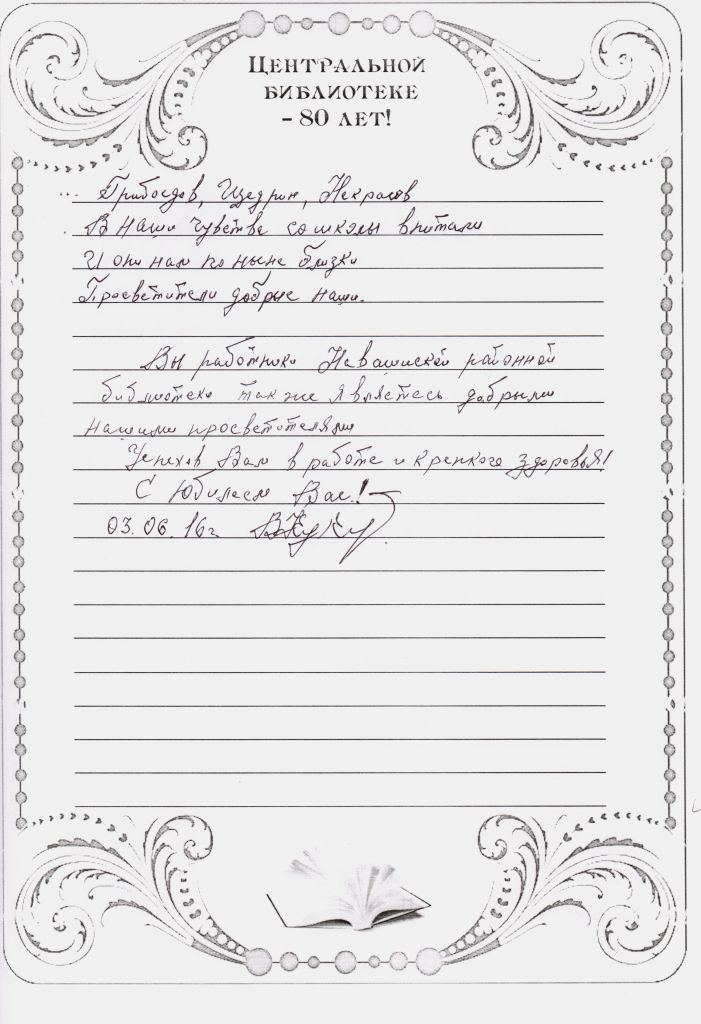 ЦЕНТРАЛЬНОЙ
БИБЛИОТЕКЕ
- 80 ЛЕТ!
... Грибоедов, Щедрин, Некрасов
В наши чувства со школы впитали
И они нам по ныне близки
Просветители добрые наши.
Вы работники Навашинской районной
библиотеки так же являетесь добрыми
нашими просветителями
Успехов Вам в работе и крепкого здоровья!
С Юбилеем Вас!
03.06.16г.